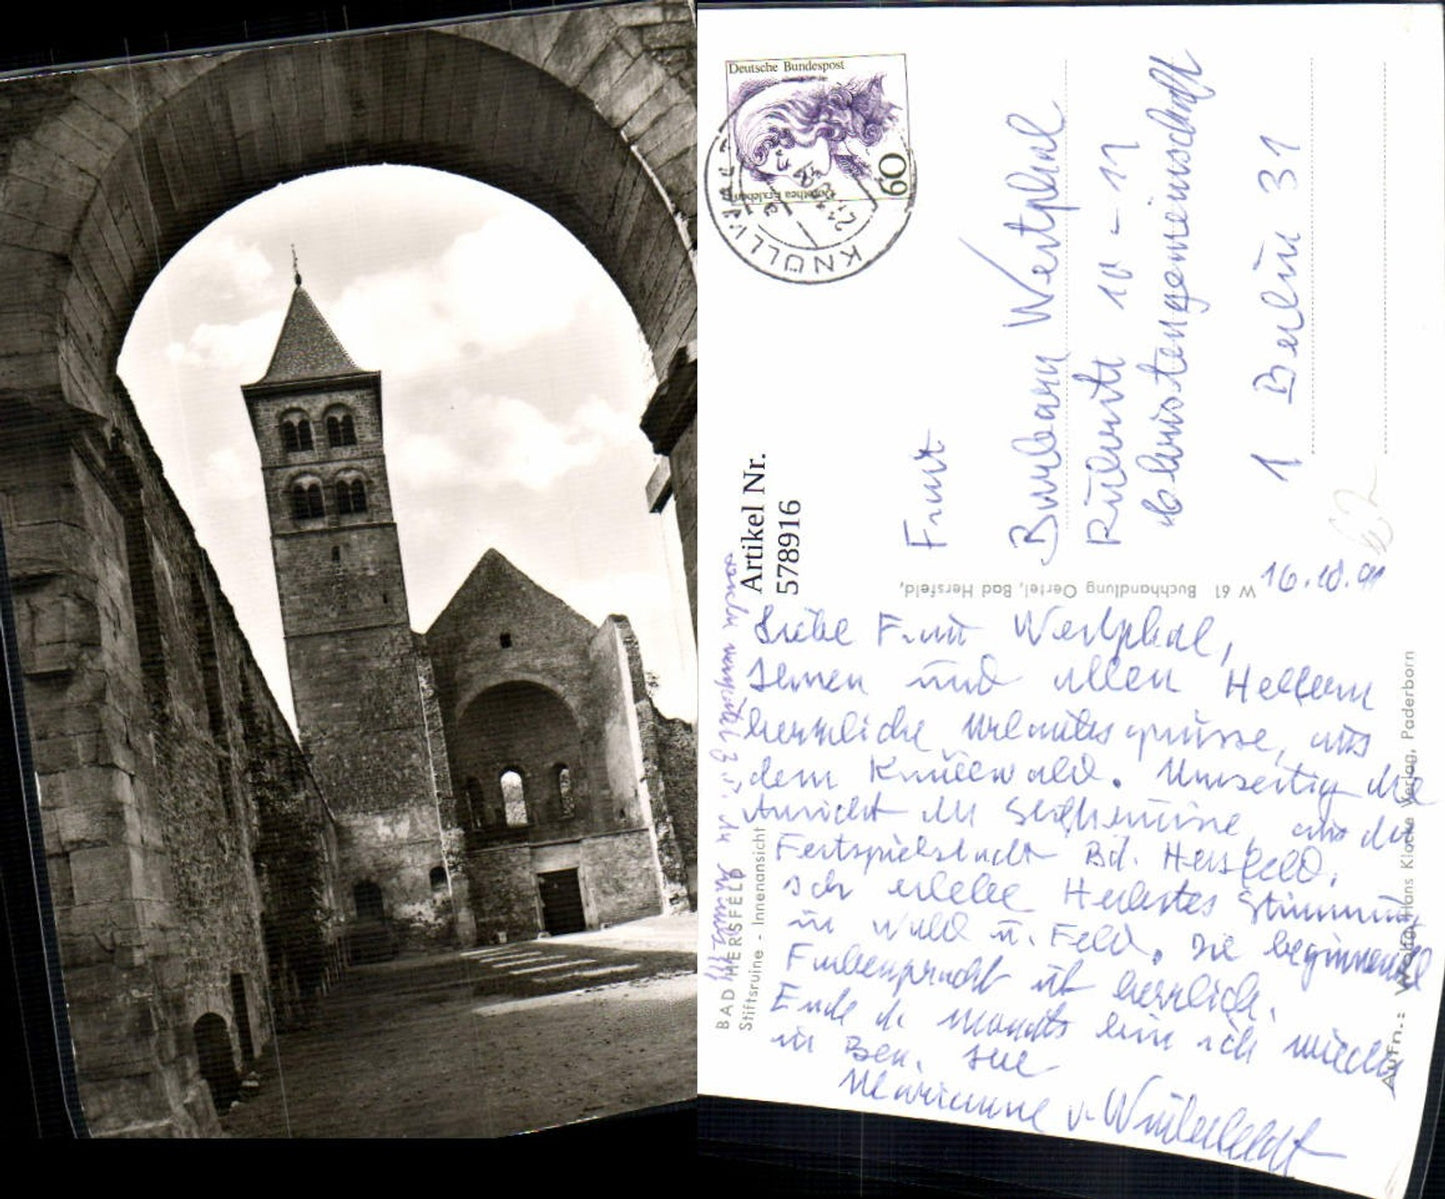 Deutsche Bundespost
60
Dorothea Erxleben
KNÜLLWALD
Artikel Nr.
578916
Frau
Barbara Westphal
10 - 11
Christengemeinschaft
1 Berlin 31
W 61 Buchhandlung Oertel, Bad Hersfeld,
16.10.91
Liebe Frau Westphal,
Ihnen und allen Helfern
herzliche Urlaubsgrüsse, aus
dem Knüllwald. Umseitig die
Ansicht der Stiftsruine, aus der
Festspielstadt Bd. Hersfeld.
Ich erlebe Herbstes Stimmung
in Wald u. Feld. Die beginnende
Farbenpracht ist herrlich.
Ende d. Monats bin ich wieder
in Bln. Ihre
Marianne v. Winterfeldt
BAD HERSFELD
Stiftsruine - Innenansicht
Aufn.: Hans Klocke Verlag, Paderborn